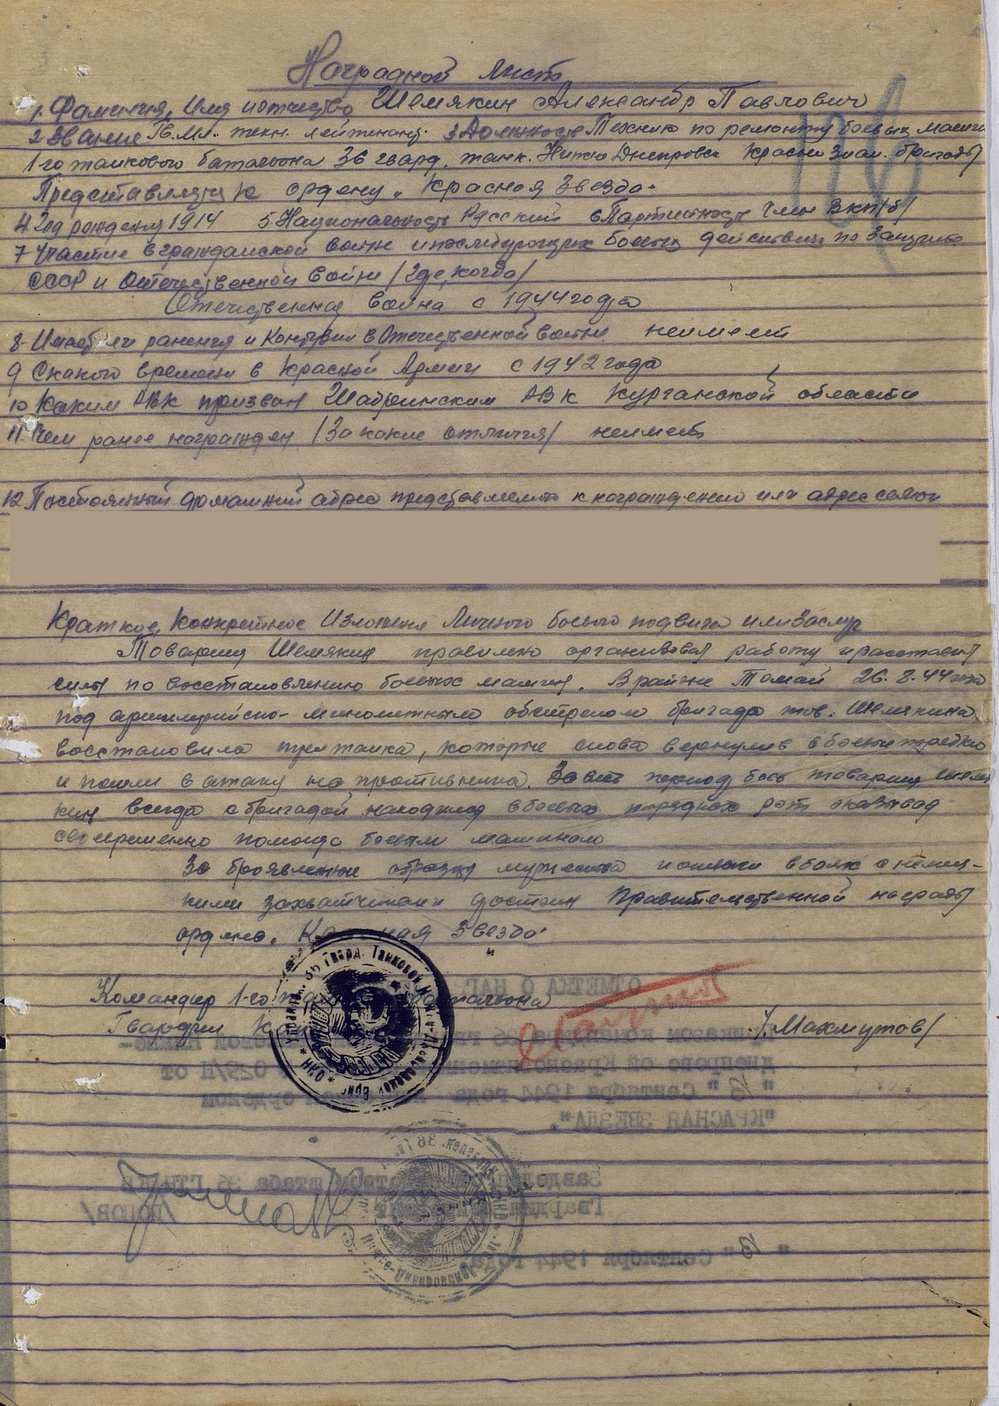 Наградной лист
1. Фамилия, имя и отчество Шемякин Александр Павлович
2 Звание Гв. мл. техн. лейтенант. 3 Должность Техник по ремонту боевых машин
1-го танкового батальона 36 гвард. танк. Нижне Днепровск Краснознам. бригады
Представляется к ордену "Красная Звезда"
4 Год рождения 1914 5 Национальность Русский 6 Партийность Член ВКП/б/
7 Участие в гражданской войне и последующих боевых действиях по защите
СССР и Отечественной войне /где, когда/
Отечественная война с 1944 года
8. Имеет ли ранения и контузии в Отечественной войне не имеет
9 С какого времени в Красной Армии с 1942 года
10 Каким РВК призван РВК Курганской области
11 Чем ранее награжден /За какие отличия/ не имеет
12 Постоянный домашний адрес представляемого к награждению или адрес семьи
Краткое, конкретное изложение личного боевого подвига или заслуг
Товарищ Шемякин правильно организовал работу и расставил
силы по восстановлению боевых машин. В районе Томай 26.8.44 года
под артиллерийско-минометным обстрелом бригада тов. Шемякина
восстановила три танка, которые снова вернулись в боевые порядки
и пошли в атаку на противника. За весь период боев товарищ Шемя-
кин всегда с бригадой находился в боевых порядках рот оказывая
своевременно помощь боевым машинам
За проявленные образцы мужества и отваги в боях с немец-
кими захватчиками достоин Правительственной награды
ордена "Красная Звезда"
Командир 1-го батальона
Гвардии /Махмутов/
ОТМЕТКА О НАГ
Приказом командира 36
Днепровской Краснознаменной 029/Н от
"13" Сентября 1944 года орденом
"КРАСНАЯ ЗВЕЗДА".
штаба 36 ГТНКБ
Гвардии /ПОПОВ/
"13" Сентября 1944 года